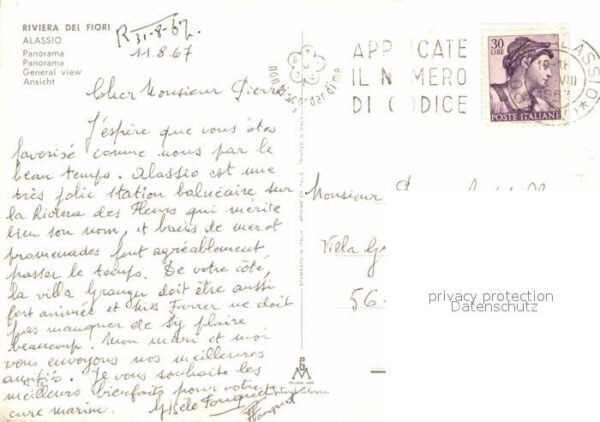 RIVIERA DEI FIORI
ALASSIO
Panorama
Panorama
General view
Ansicht
R 31-8-67
11.8.67
Cher Monsieur Pierre
J'espère que vous êtes
favorisé comme nous par le
beau temps. Alassio est une
très jolie station balnéaire sur
la Riviera des Fleurs qui mérite
bien son nom, et bains de mer et
promenades font agréablement
passer le temps. De votre côté,
la villa doit être aussi
fort animée et Miss ne doit
pas manquer de s'y plaire
beaucoup. Mon mari et moi
vous envoyons nos meilleures
amitiés. Je vous souhaite les
meilleurs bienfaits pour votre
cure marine.
Gisèle Fouquet
APPLICATE
IL NUMERO
DI CODICE
ALASSIO
30
LIRE
POSTE ITALIANE
Monsieur
Villa
56-
privacy protection
Datenschutz